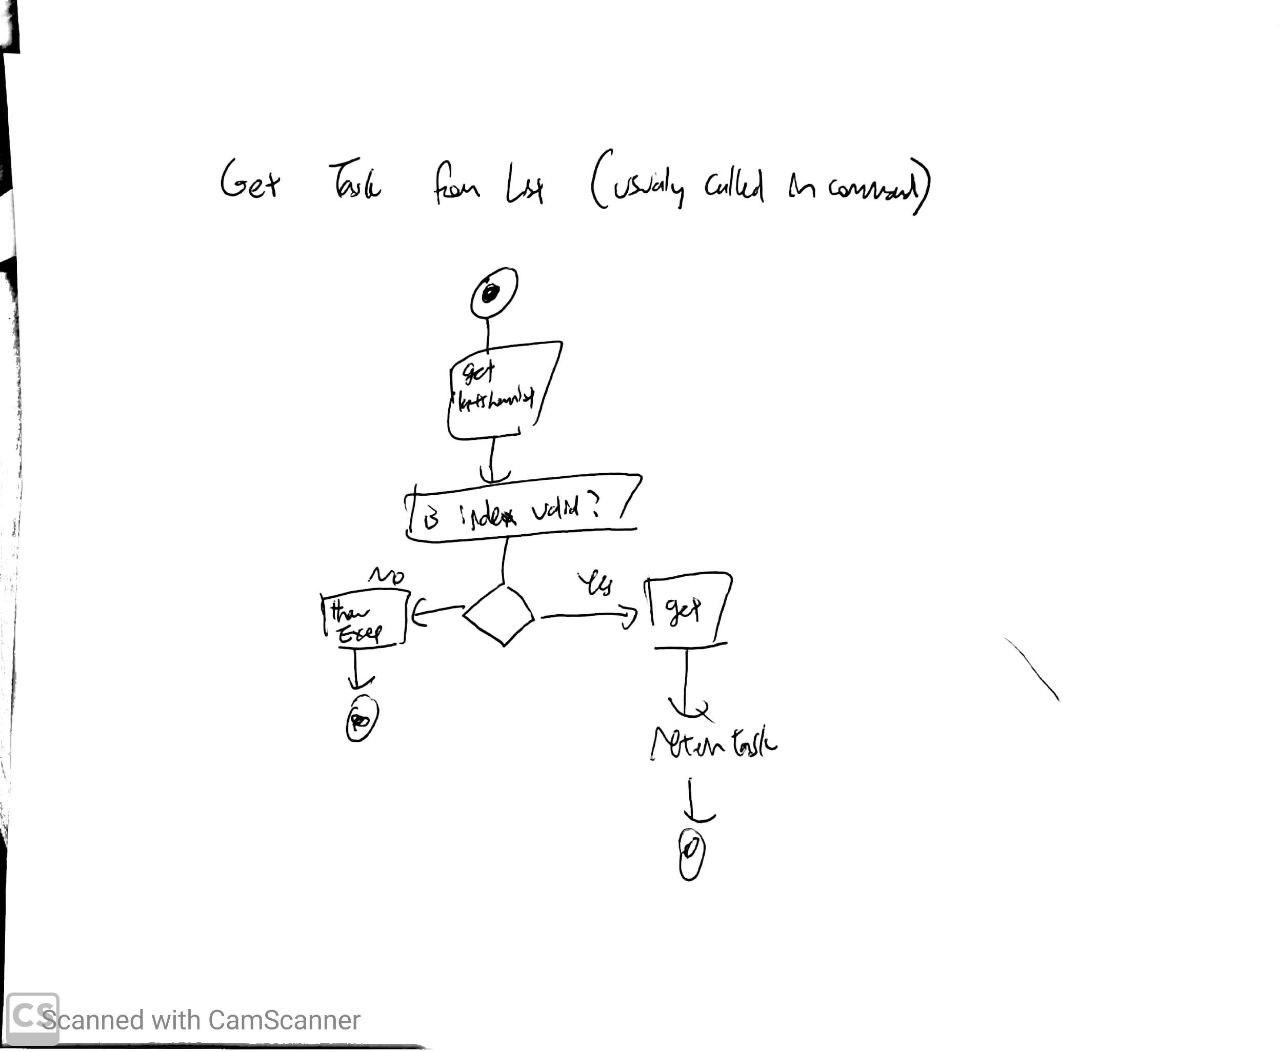 Get Task from List (usualy called in command)
get
Is index valid?
No
Yes
throw
Excep
get
return task
CS Scanned with CamScanner